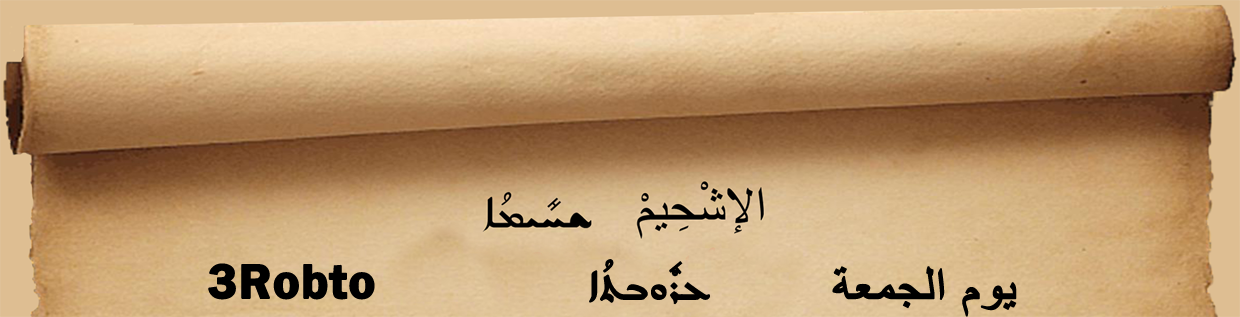 الإشْحِيمْ ܫܚܺܝܡܳܐ
يوم الجمعة ܥܪܽܘܒܬܳܐ 3Robto